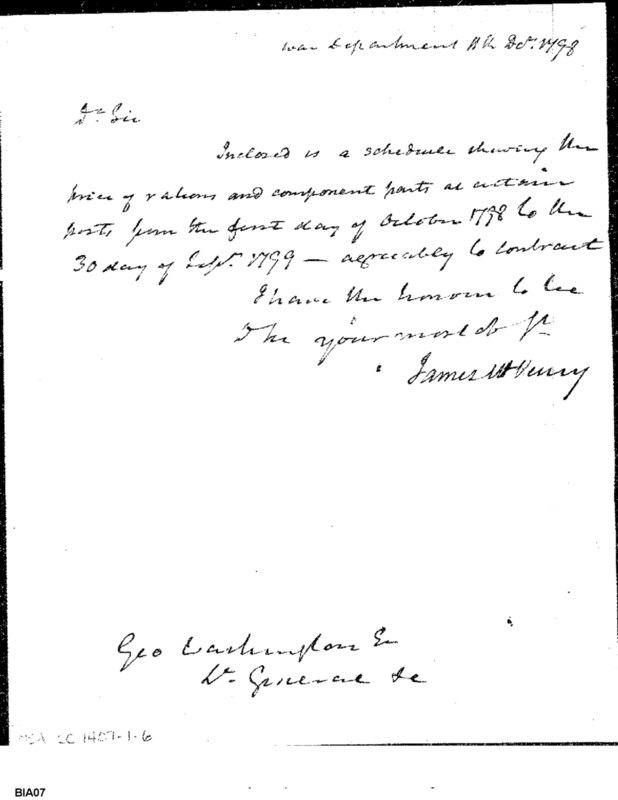 War Department 11th Decr. 1798
Dr Sir
Inclosed is a schedule shewing the
price of rations and component parts at certain
posts from the first day of October 1798 to the
30 day of Sept. 1799 — agreeably to contract
I have the honour to be
your most ob St
James McHenry
Geo Washington E
Lt. General &c
MSA SC 1407-1-6
BIA07